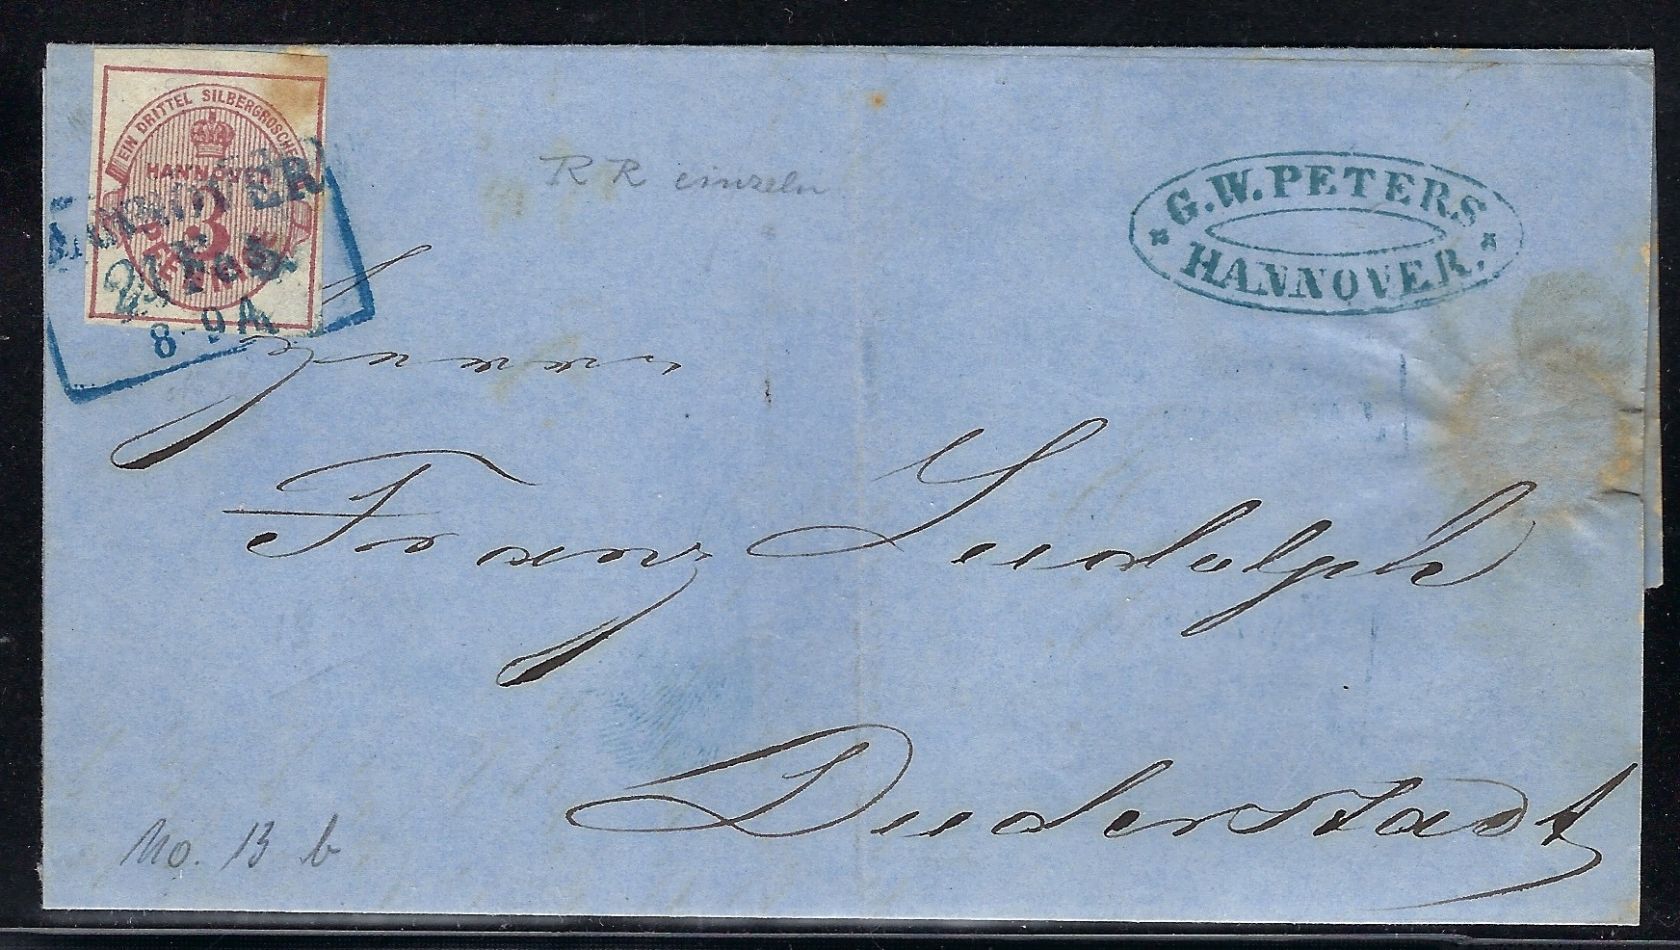 EIN DRITTEL SILBERGROSCHEN
HANNOVER
3
PFENNIGE
HANNOVER
8-9 A
RR einzeln
G. W. PETERS
HANNOVER.
Herrn
Franz Ludolph
Duderstadt
No. 13 b